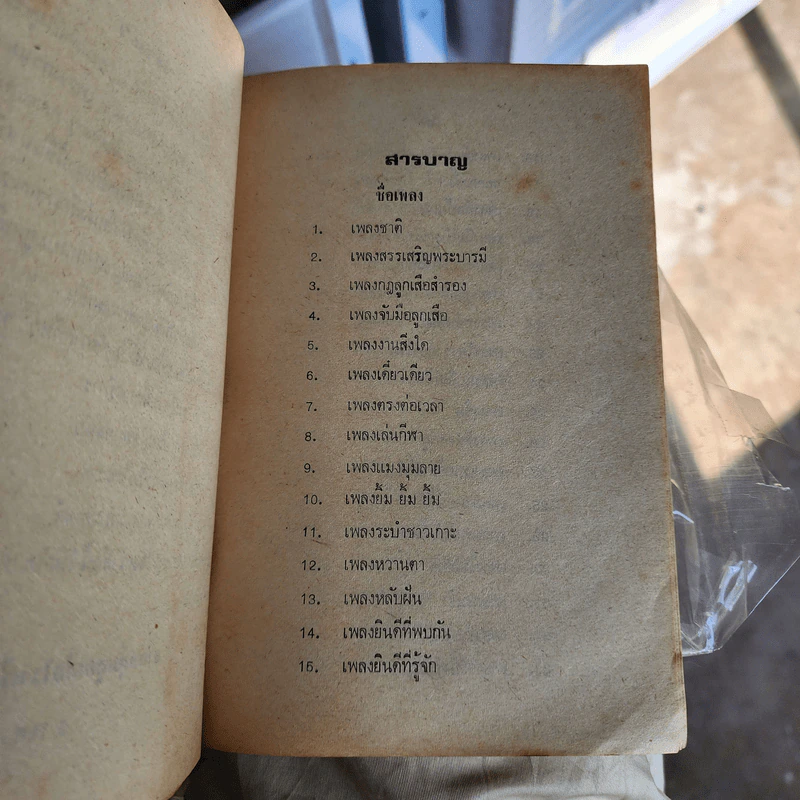 สารบาญ
ชื่อเพลง
1. เพลงชาติ
2. เพลงสรรเสริญพระบารมี
3. เพลงกฎลูกเสือสำรอง
4. เพลงจับมือลูกเสือ
5. เพลงงานสิ่งใด
6. เพลงเดี๋ยวเดียว
7. เพลงตรงต่อเวลา
8. เพลงเล่นกีฬา
9. เพลงแมงมุมลาย
10. เพลงยิ้ม ยิ้ม ยิ้ม
11. เพลงระบำชาวเกาะ
12. เพลงหวานตา
13. เพลงหลับฝัน
14. เพลงยินดีที่พบกัน
15. เพลงยินดีที่รู้จัก